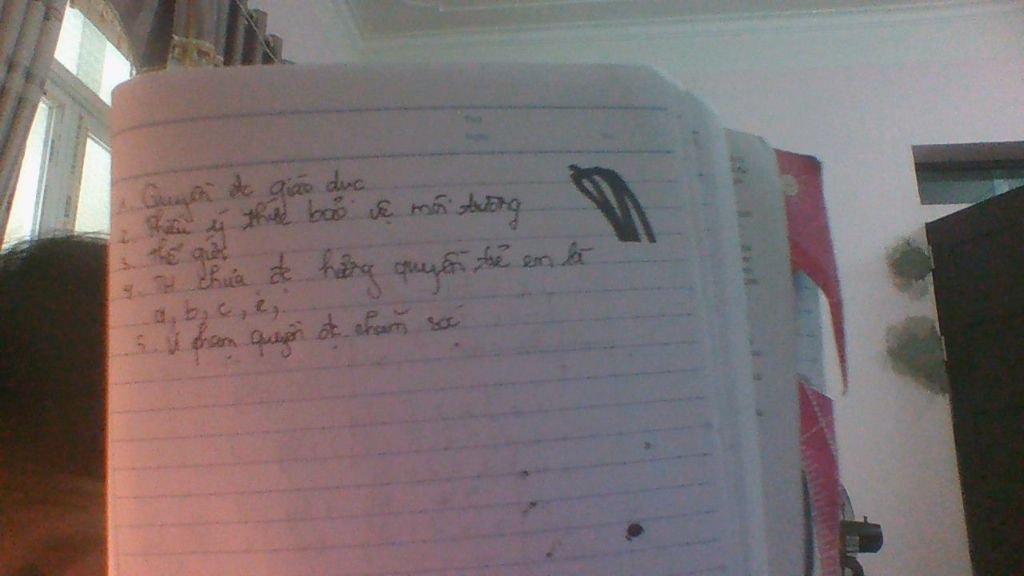 1. Quyền đc giáo dục
2. thiếu ý thức bảo vệ môi trường
3. thế giới
4. TH chưa đc hưởng quyền trẻ em là
a, b, c, e,
5. Vi phạm quyền đc chăm sóc